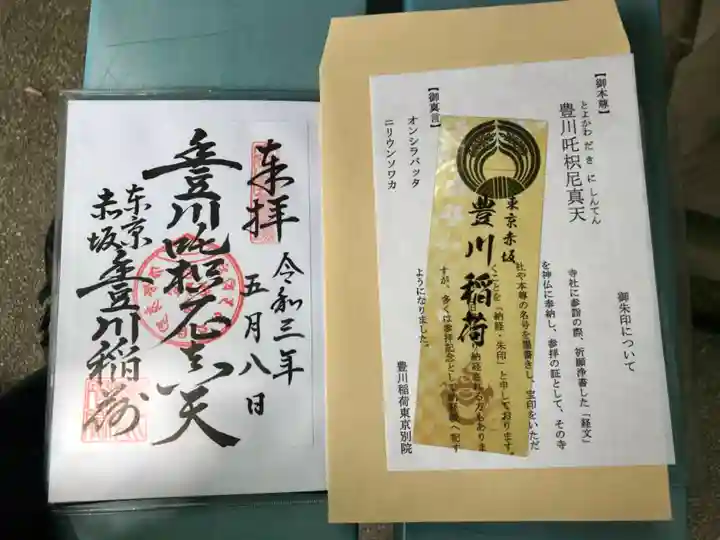 来拝
令和三年
五月八日
豊川吒枳尼真天
東京
赤坂
豊川稲荷
【御本尊】
とよかわ だ き に しんてん
豊川吒枳尼真天
【御真言】
オンシラバッタ
ニリウンソワカ
東京赤坂
豊川稲荷
御朱印について
寺社に参詣の際、祈願浄書した「経文」
を神仏に奉納し、参拝の証として、その寺
社や本尊の名号を墨書きし、宝印をいただ
くことを「納経・朱印」と申しております。
納経を
る方もありま
すが、多くは参拝記念として
へ記す
ようになりました。
豊川稲荷東京別院